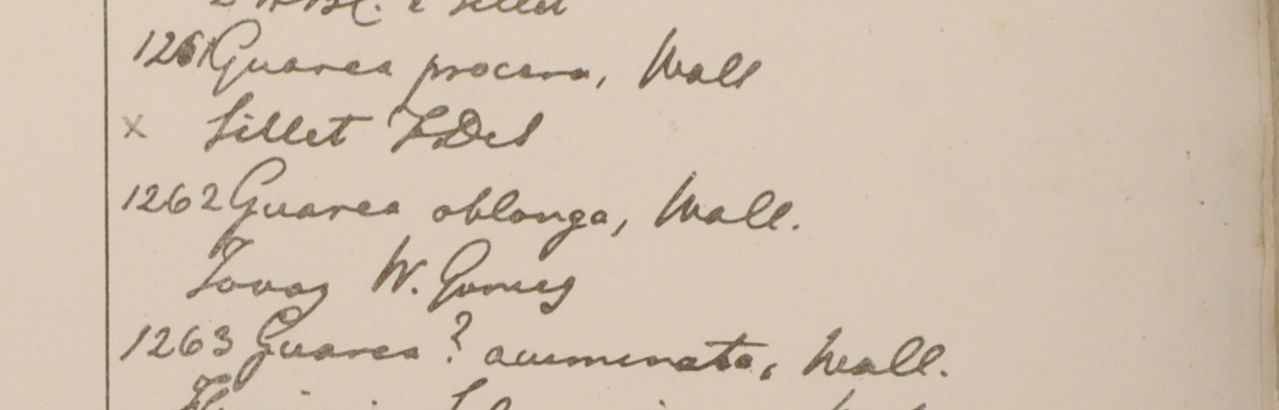 1261 Guarea procera, Wall
x Sillet FDeS
1262 Guarea oblonga, Wall.
Tavoy W. Gomez
1263 Guarea ? acuminata, Wall.